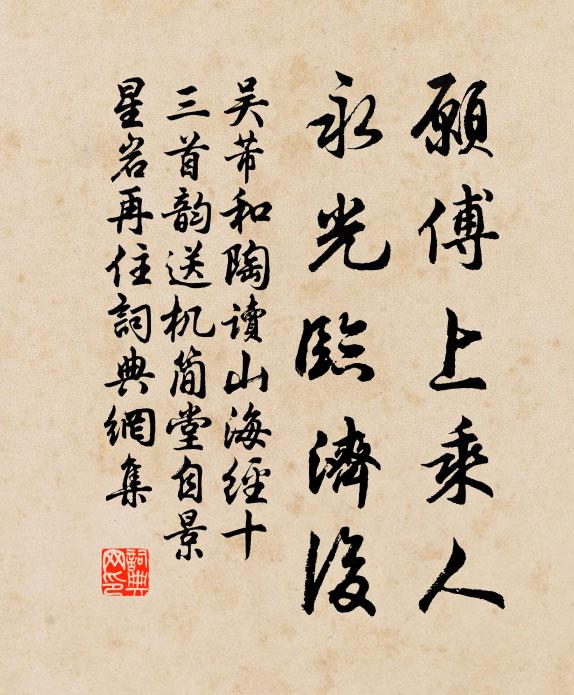 願傅上乘人
永光臨濟後
吴芾和陶讀山海經十
三首韵送机简堂自景
星岩再住詞典網集
詞典
网印